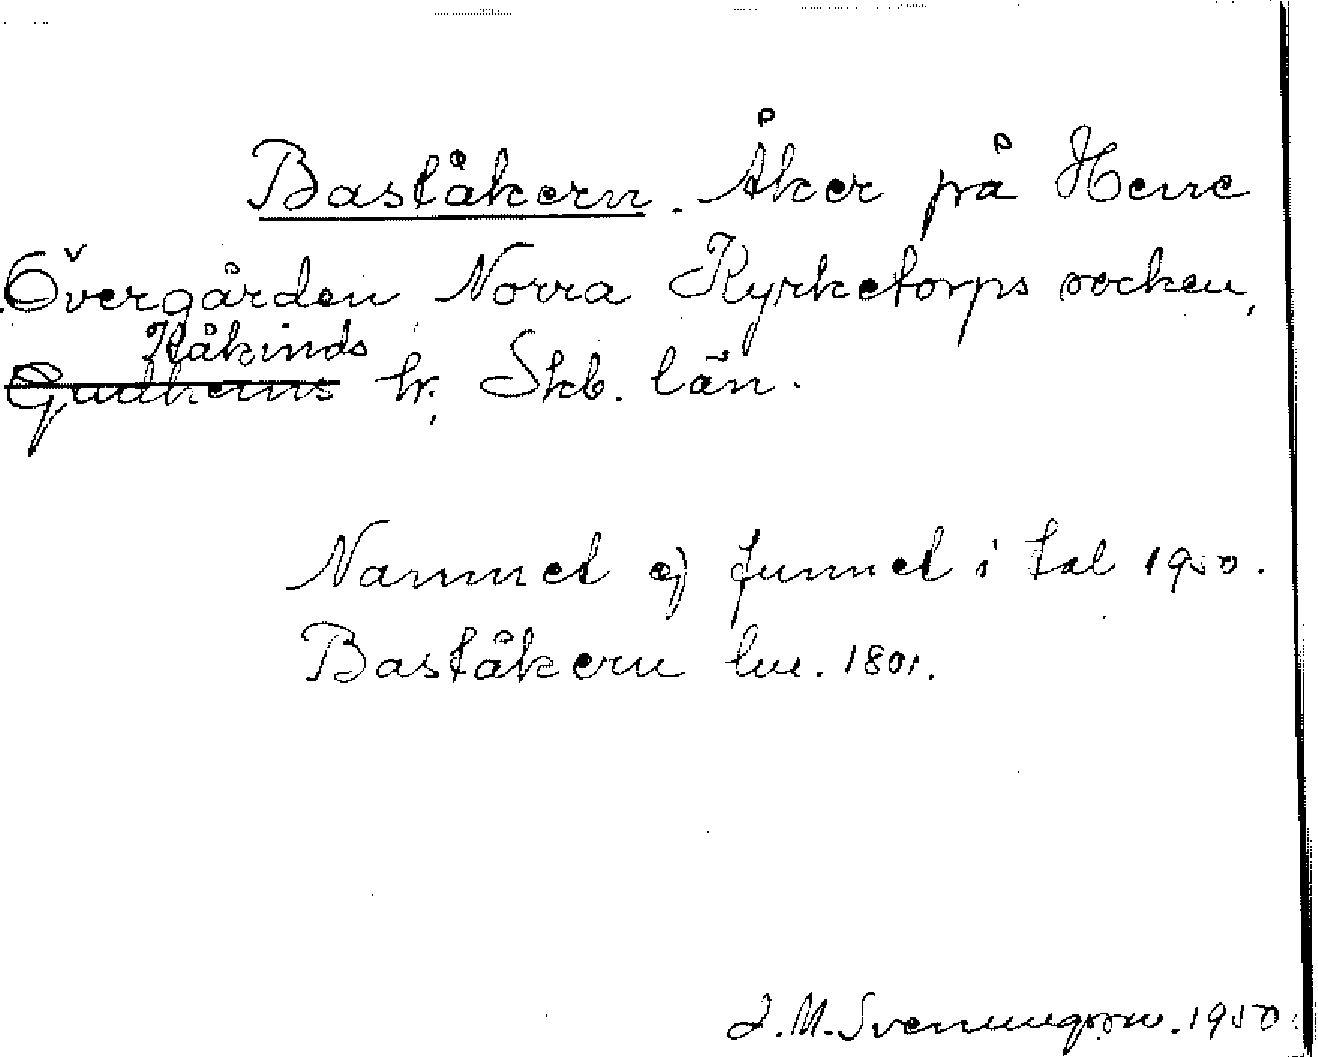 Baståkern. Åker på Hene
Övergården Norra Kyrketorps socken,
Kåkinds
Gudhems hr, Skb. län.
Namnet ej funnet i tal 1950.
Baståkern lm. 1801.
J. M. Svenungsson. 1950.